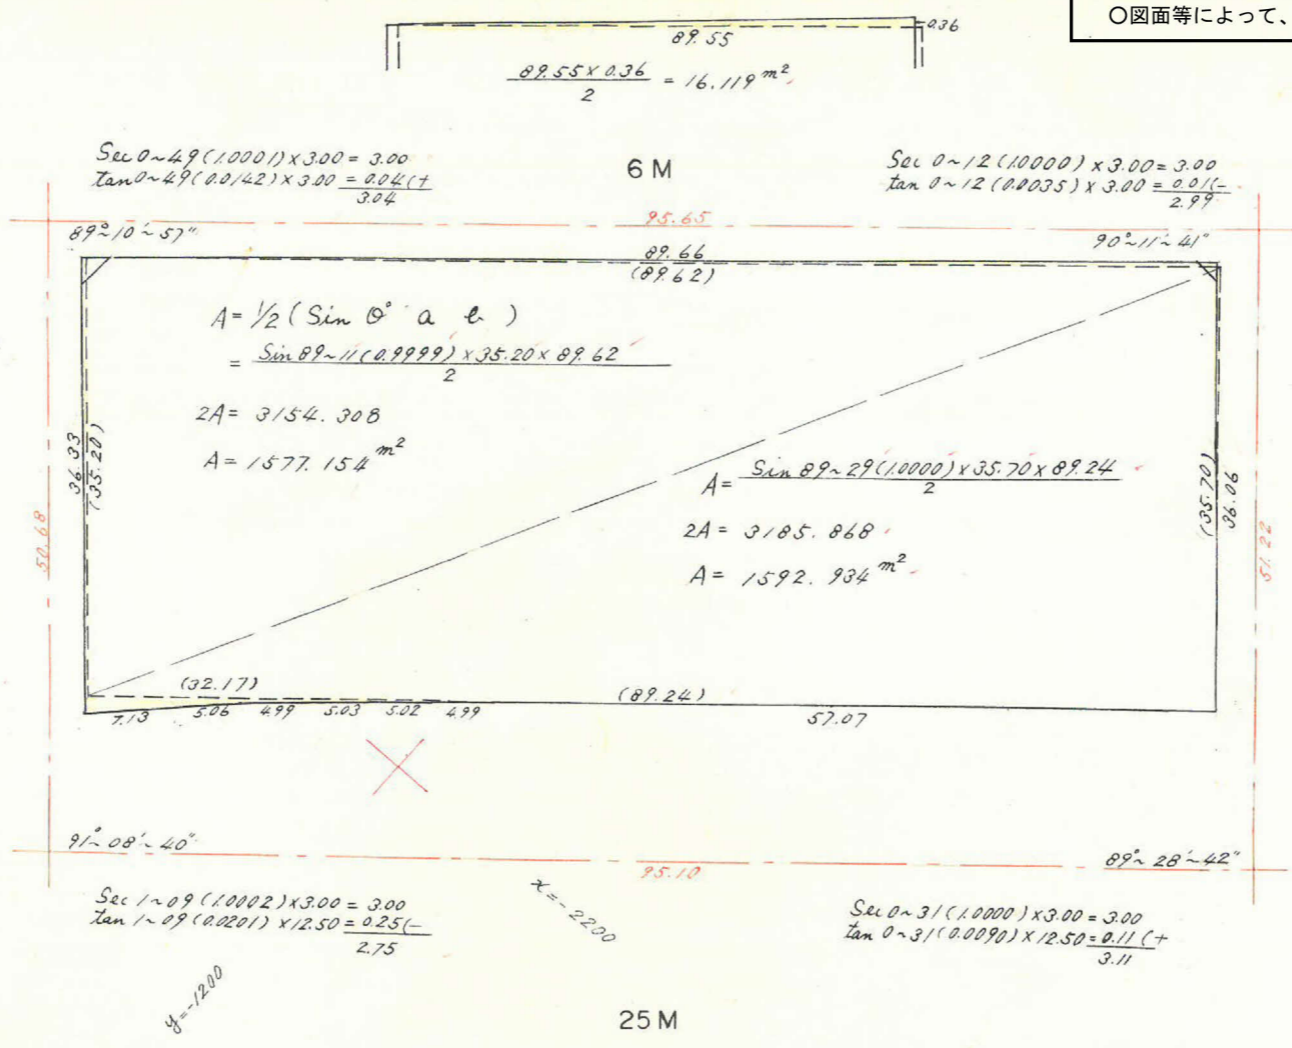 〇図面等によって、
0.36
89.55
89.55 x 0.36 / 2 = 16.119 m²
Sec 0~49 (1.0001) x 3.00 = 3.00
tan 0~49 (0.0142) x 3.00 = 0.04 (+
3.04
6 M
Sec 0~12 (1.0000) x 3.00 = 3.00
tan 0~12 (0.0035) x 3.00 = 0.01 (-
2.99
95.65
89°~10'~57"
90°~11'~41"
89.66
(89.62)
A = 1/2 ( Sin θ° a b )
= Sin 89~11 (0.9999) x 35.20 x 89.62 / 2
2A = 3154.308
A = 1577.154 m²
36.33
(35.20)
50.68
A = Sin 89~29 (1.0000) x 35.70 x 89.24 / 2
2A = 3185.868
A = 1592.934 m²
(35.70)
36.06
51.22
(32.17)
(89.24)
7.13 5.06 4.99 5.03 5.02 4.99 57.07
91°~08'~40"
89°~28'~42"
95.10
Sec 1~09 (1.0002) x 3.00 = 3.00
tan 1~09 (0.0201) x 12.50 = 0.25 (-
2.75
x=-2200
Sec 0~31 (1.0000) x 3.00 = 3.00
tan 0~31 (0.0090) x 12.50 = 0.11 (+
3.11
y=-1200
25 M